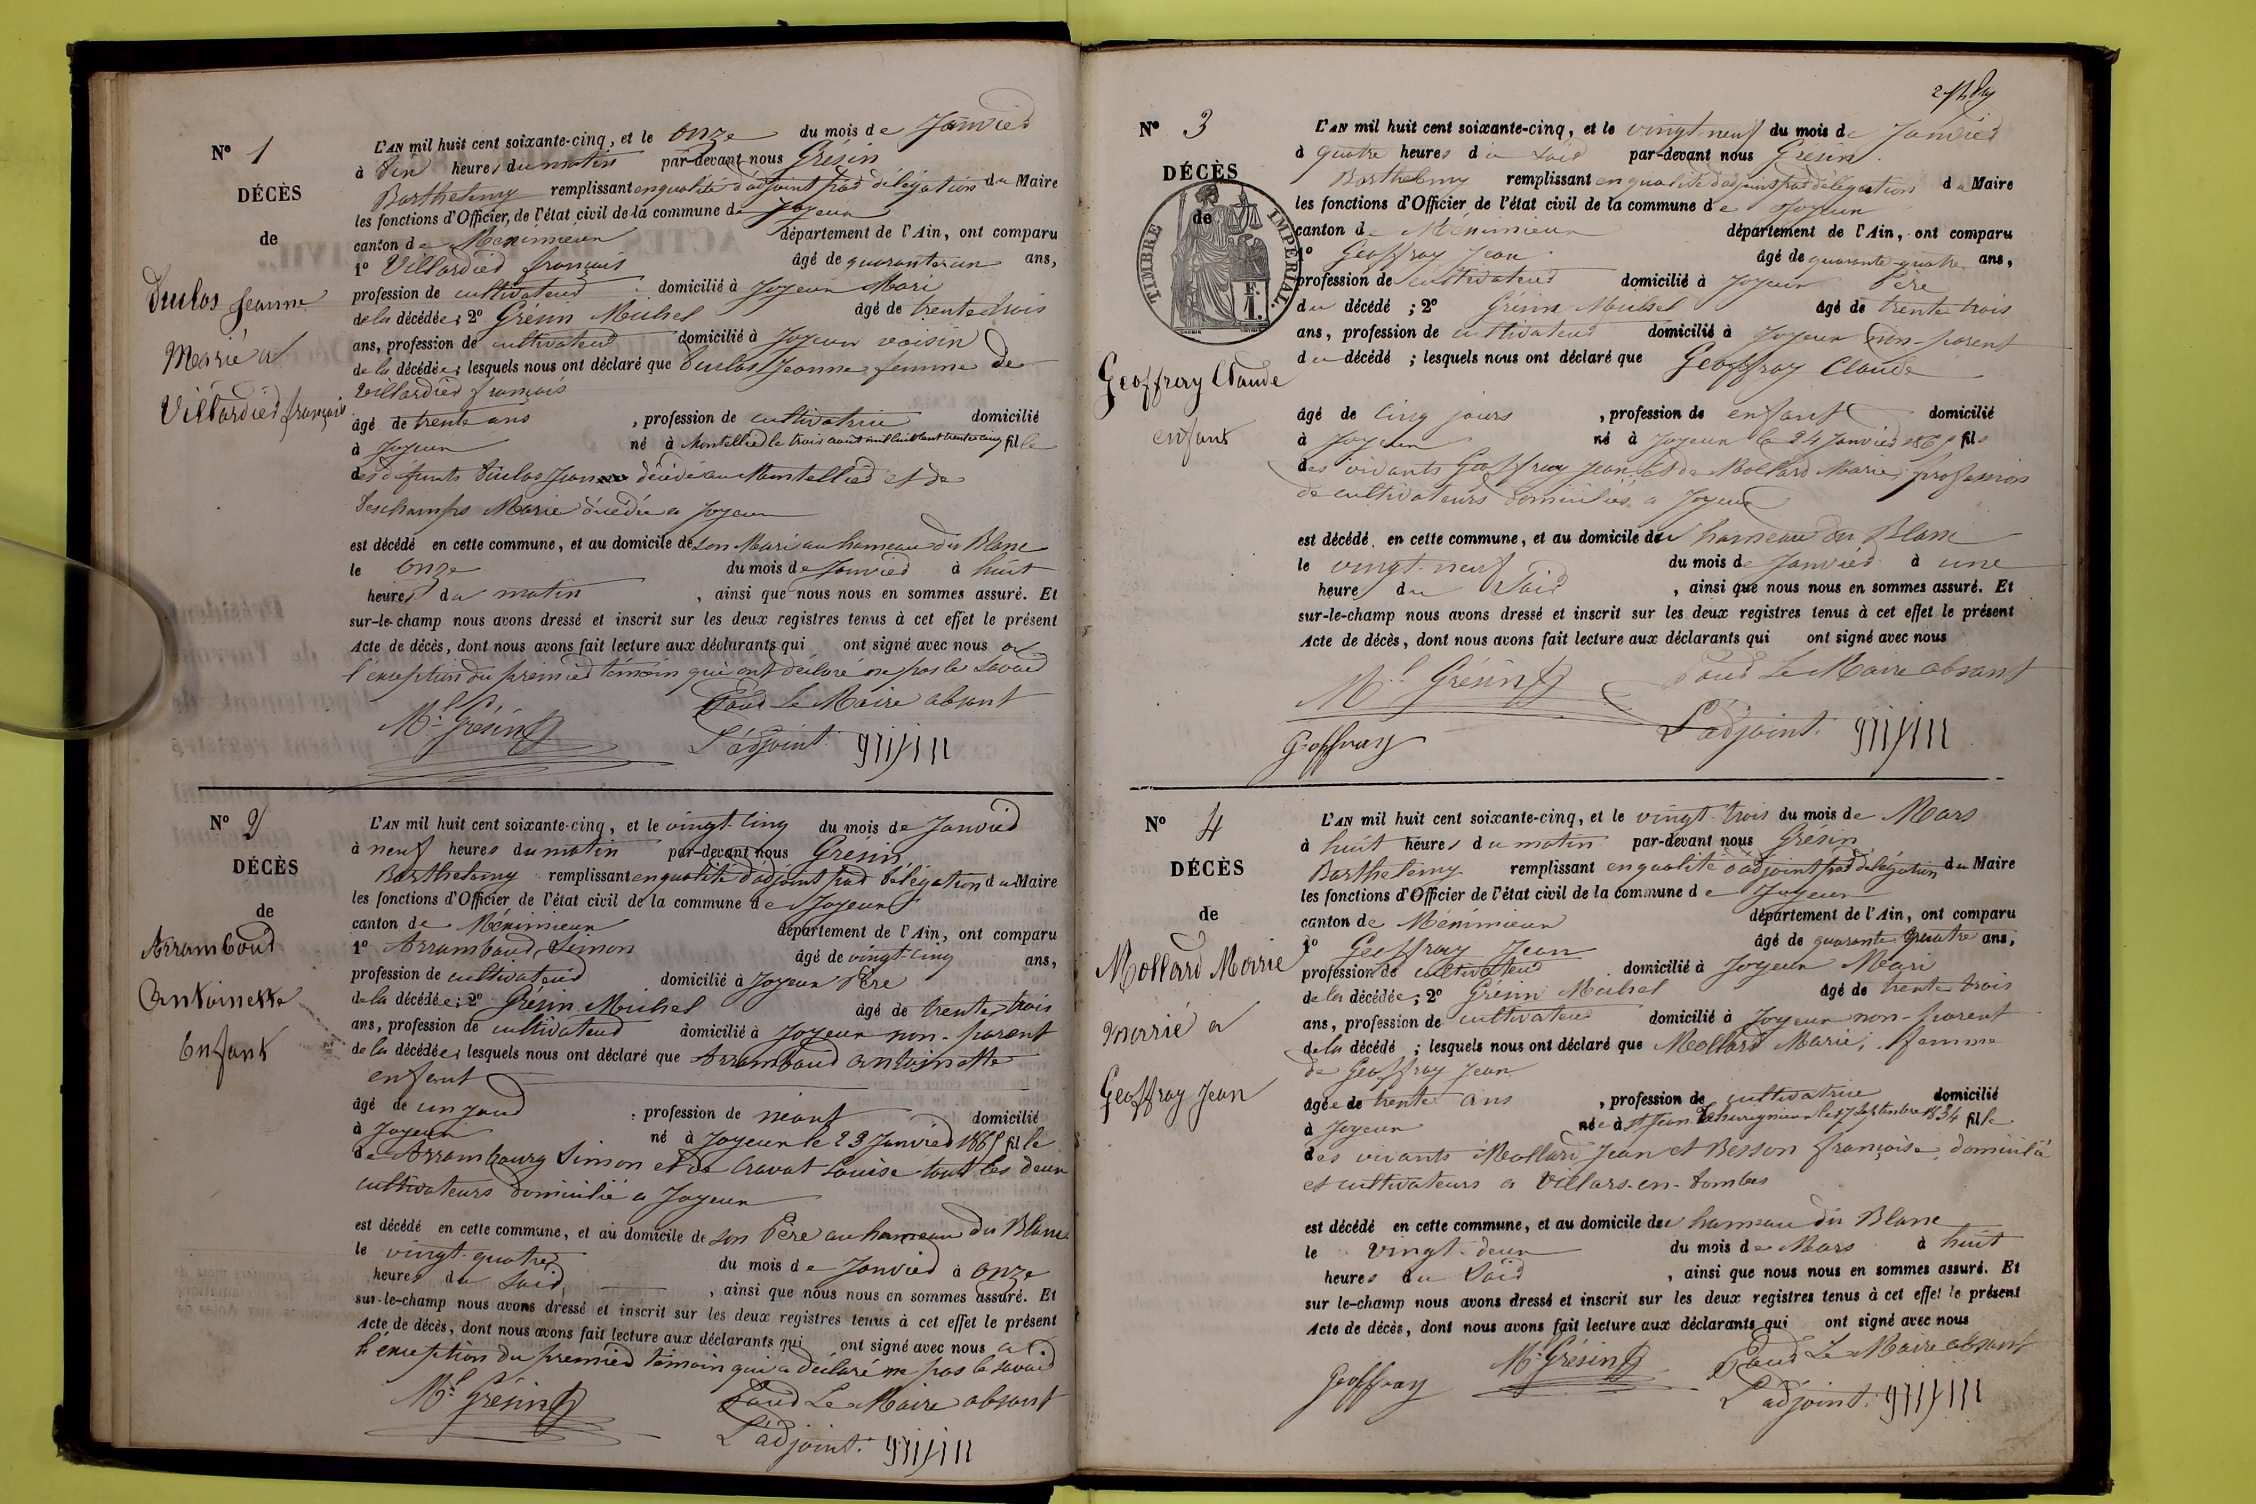 N° 1
DÉCÈS
de
Duclos Jeanne
Marrié a
Villardier françois
L'AN mil huit cent soixante-cinq, et le Onze du mois de Janvier
à dix heures du matin par-devant nous Grésin
Barthelemy remplissant en qualité d'adjoint par délégation du Maire
les fonctions d'Officier de l'état civil de la commune de Joyeux
canton de Méximieux département de l'Ain, ont comparu
1° Villardier françois âgé de quarante un ans,
profession de cultivateur domicilié à Joyeux Mari
de la décédée; 2° Grésin Michel âgé de trente trois
ans, profession de cultivateur domicilié à Joyeux voisin
de la décédée; lesquels nous ont déclaré que Duclos Jeanne femme de
Villardier françois
âgé de trente ans, profession de cultivatrice domicilié
à Joyeux né à Montellier le trois aout mil huit cent trente cinq fille
des défunts Duclos Jean décédé au Montellier et de
Deschamps Marie décédée a Joyeux
est décédé en cette commune, et au domicile de son Mari au hameau du Blanc
le Onze du mois de Janvier à huit
heures du matin, ainsi que nous nous en sommes assuré. Et
sur-le-champ nous avons dressé et inscrit sur les deux registres tenus à cet effet le présent
Acte de décès, dont nous avons fait lecture aux déclarants qui ont signé avec nous a
l'exception du premier témoin qui ont déclaré ne pas le savoir
Pour Le Maire absent
M.l Grésin
L'adjoint. grésin
N° 2
DÉCÈS
de
Arrambourd
Antoinette
Enfant
L'AN mil huit cent soixante-cinq, et le vingt-cinq du mois de Janvier
à neuf heures du matin par-devant nous Grésin
Barthelemy remplissant en qualité d'adjoint par délégation du Maire
les fonctions d'Officier de l'état civil de la commune de Joyeux
canton de Méximieux département de l'Ain, ont comparu
1° Arrambourd Simon âgé de vingt-cinq ans,
profession de cultivateur domicilié à Joyeux Père
de la décédée; 2° Grésin Michel âgé de trente trois
ans, profession de cultivateur domicilié à Joyeux non-parent
de la décédée; lesquels nous ont déclaré que Arrambourd Antoinette
enfant
âgé de un jour, profession de néant domicilié
à Joyeux né à Joyeux le 23 Janvier 1865 fille
de Arrambourg Simon et de Cravat Louise tout les deux
cultivateurs domicilié a Joyeux
est décédé en cette commune, et au domicile de son Père au hameau du Blanc
le vingt-quatre du mois de Janvier à onze
heures du soir, ainsi que nous nous en sommes assuré. Et
sur-le-champ nous avons dressé et inscrit sur les deux registres tenus à cet effet le présent
Acte de décès, dont nous avons fait lecture aux déclarants qui ont signé avec nous a
l'exception du premier témoin qui a déclaré ne pas le savoir
M.l Grésin
Pour Le Maire absent
L'adjoint. grésin
N° 3
DÉCÈS
de
TIMBRE IMPÉRIAL
F.
1.
Geoffray Claude
enfant
L'AN mil huit cent soixante-cinq, et le vingt-neuf du mois de Janvier
à quatre heures du soir par-devant nous Grésin
Barthelemy remplissant en qualité d'adjoint par délégation du Maire
les fonctions d'Officier de l'état civil de la commune de Joyeux
canton de Méximieux département de l'Ain, ont comparu
1° Geoffray Jean âgé de quarante-quatre ans,
profession de cultivateur domicilié à Joyeux Père
du décédé; 2° Grésin Michel âgé de trente trois
ans, profession de cultivateur domicilié à Joyeux non-parent
du décédé; lesquels nous ont déclaré que Geoffray Claude
âgé de cinq jours, profession de enfant domicilié
à Joyeux né à Joyeux le 24 Janvier 1865 fils
des vivants Geoffray Jean Et de Mollard Marie, profession
de cultivateurs domiciliés a Joyeux
est décédé en cette commune, et au domicile du hameau du Blanc
le vingt-neuf du mois de Janvier à une
heure du soir, ainsi que nous nous en sommes assuré. Et
sur-le-champ nous avons dressé et inscrit sur les deux registres tenus à cet effet le présent
Acte de décès, dont nous avons fait lecture aux déclarants qui ont signé avec nous
M.l Grésin
Pour Le Maire absent
Geoffray
L'adjoint. grésin
N° 4
DÉCÈS
de
Mollard Marie
marrié a
Geoffray Jean
L'AN mil huit cent soixante-cinq, et le vingt-trois du mois de Mars
à huit heures du matin par-devant nous Grésin
Barthelemy remplissant en qualité d'adjoint par délégation du Maire
les fonctions d'Officier de l'état civil de la commune de Joyeux
canton de Méximieux département de l'Ain, ont comparu
1° Geoffray Jean âgé de quarante quatre ans,
profession de cultivateur domicilié à Joyeux Mari
de la décédée; 2° Grésin Michel âgé de trente trois
ans, profession de cultivateur domicilié à Joyeux non-parent
de la décédé; lesquels nous ont déclaré que Mollard Marie, femme
de Geoffray Jean
âgée de trente ans, profession de cultivatrice domicilié
à Joyeux née à St Jean le 17 septembre 1834 fille
des vivants Mollard Jean et Besson françoise domicilié
et cultivateurs a Villars-en-Dombes
est décédé en cette commune, et au domicile du hameau du Blanc
le vingt-deux du mois de Mars à huit
heures du soir, ainsi que nous nous en sommes assuré. Et
sur le-champ nous avons dressé et inscrit sur les deux registres tenus à cet effet le présent
Acte de décès, dont nous avons fait lecture aux déclarants qui ont signé avec nous
Geoffray
M.l Grésin
Pour Le Maire absent
L'adjoint. grésin